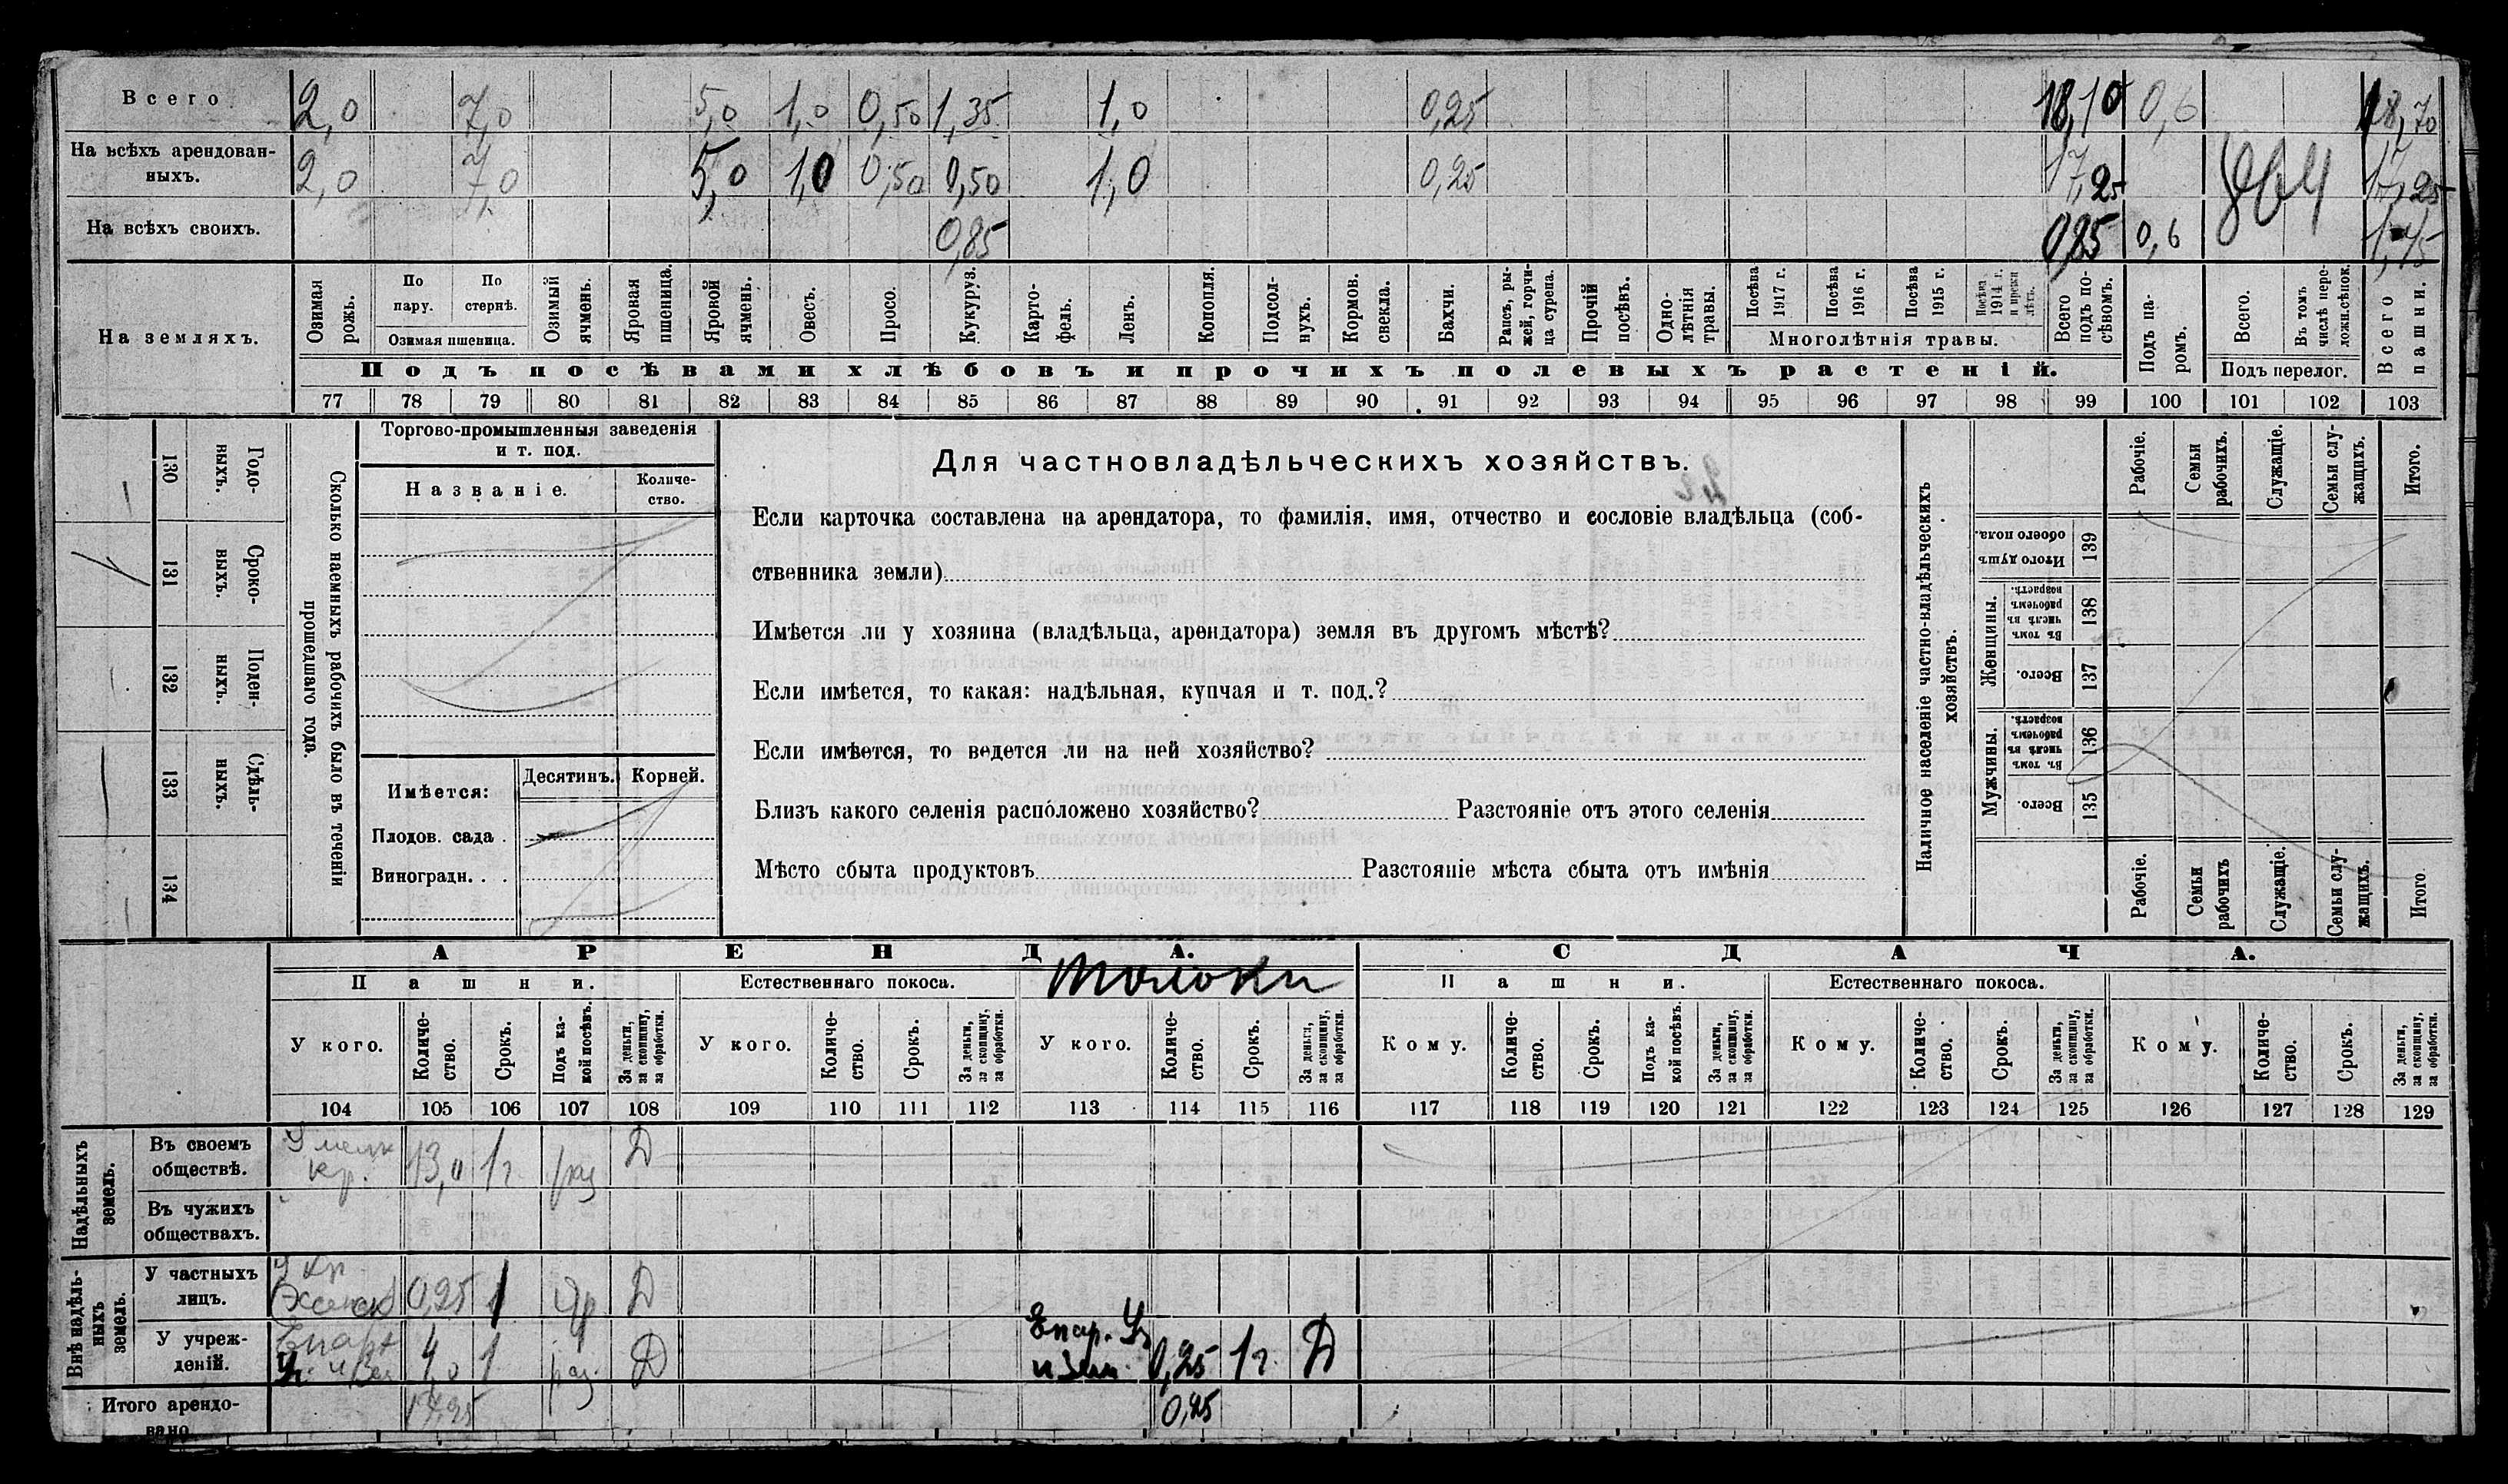 Всего 2,0 7,0 5,0 1,0 0,50 1,35 1,0 0,25 18,10 0,6 18,70
На всѣхъ арендован-
ныхъ. 2,0 7,0 5,0 1,0 0,50 0,50 1,0 0,25 17,25 17,25
На всѣхъ своихъ. 0,85 0,85 0,6 1,45
На земляхъ.
Озимая рожь.
По пару.
По стернѣ.
Озимая пшеница.
Озимый ячмень.
Яровая пшеница.
Яровой ячмень.
Овесъ.
Просо.
Кукуруз.
Карто-
фель.
Ленъ.
Конопля.
Подсол-
нухъ.
Кормов.
свекла.
Бахчи.
Рапсъ, ры-
жей, горчи-
ца сурепа.
Прочій
посѣвъ.
Одно-
лѣтнія
травы.
Посѣва
1917 г.
Посѣва
1916 г.
Посѣва
1915 г.
Посѣва
1914 г.
и преж
лѣтъ.
Многолѣтнія травы.
Всего
подъ по-
сѣвомъ.
Подъ па-
ромъ.
Всего.
Въ томъ
числѣ пере-
ложн.сѣнок.
Подъ перелог.
Всего
пашни.
Подъ посѣвами хлѣбовъ и прочихъ полевыхъ растеній.
77 78 79 80 81 82 83 84 85 86 87 88 89 90 91 92 93 94 95 96 97 98 99 100 101 102 103
Годо-
ныхъ.
130
Сроко-
выхъ.
131
Поден-
ныхъ.
132
Сдѣль-
ныхъ.
133
134
Сколько наемныхъ рабочихъ было въ теченіи
прошедшаго года.
Торгово-промышленныя заведенія
и т. под.
Названіе.
Количе-
ство.
Имѣется:
Десятинъ.
Корней.
Плодов. сада .
Виноградн. . .
Для частновладѣльческихъ хозяйствъ.
Если карточка составлена на арендатора, то фамилія, имя, отчество и сословіе владѣльца (соб-
ственника земли)
Имѣется ли у хозяина (владѣльца, арендатора) земля въ другомъ мѣстѣ?
Если имѣется, то какая: надѣльная, купчая и т. под.?
Если имѣется, то ведется ли на ней хозяйство?
Близъ какого селенія расположено хозяйство? Разстояніе отъ этого селенія
Мѣсто сбыта продуктовъ Разстояніе мѣста сбыта отъ имѣнія
Наличное населеніе частно-владѣльческихъ
хозяйствъ.
Рабочіе.
Семьи
рабочихъ.
Служащіе.
Семьи слу-
жащихъ.
Итого.
Итого душъ
обоего пола.
139
Женщины.
Въ томъ
числѣ въ
рабочемъ
возрастѣ.
138
Всего.
137
Мужчины.
Въ томъ
числѣ въ
рабочемъ
возрастѣ.
136
Всего.
135
Рабочіе.
Семьи
рабочихъ
Служащіе.
Семьи слу-
жащихъ.
Итого
АРЕНДА. СДАЧА.
Пашни. Естественнаго покоса. толоки Пашни. Естественнаго покоса.
У кого.
Количе-
ство.
Срокъ.
Подъ ка-
кой посѣвъ.
За деньги,
за скопщину,
за обработки.
У кого.
Количе-
ство.
Срокъ.
За деньги,
за скопщину,
за обработки.
У кого.
Количе-
ство.
Срокъ.
За деньги,
за скопщину,
за обработки.
Кому.
Количе-
ство.
Срокъ.
Подъ ка-
кой посѣвъ.
За деньги,
за скопщину,
за обработки.
Кому.
Количе-
ство.
Срокъ.
За деньги,
за скопщину,
за обработки.
Кому.
Количе-
ство.
Срокъ.
За деньги,
за скопщину,
за обработки.
104 105 106 107 108 109 110 111 112 113 114 115 116 117 118 119 120 121 122 123 124 125 126 127 128 129
Надѣльныхъ
земель.
Въ своемъ
обществѣ. кр. 13,0 1 г. раз Д
Въ чужихъ
обществахъ.
Внѣ надѣль-
ныхъ
земель.
У частныхъ
лицъ. У кр. 0,25 1 Яр Д
У учреж-
деній. 4,0 1 раз. Д Епар. 0,25 1 г. Д
Итого арендо-
вано 17,25 0,25